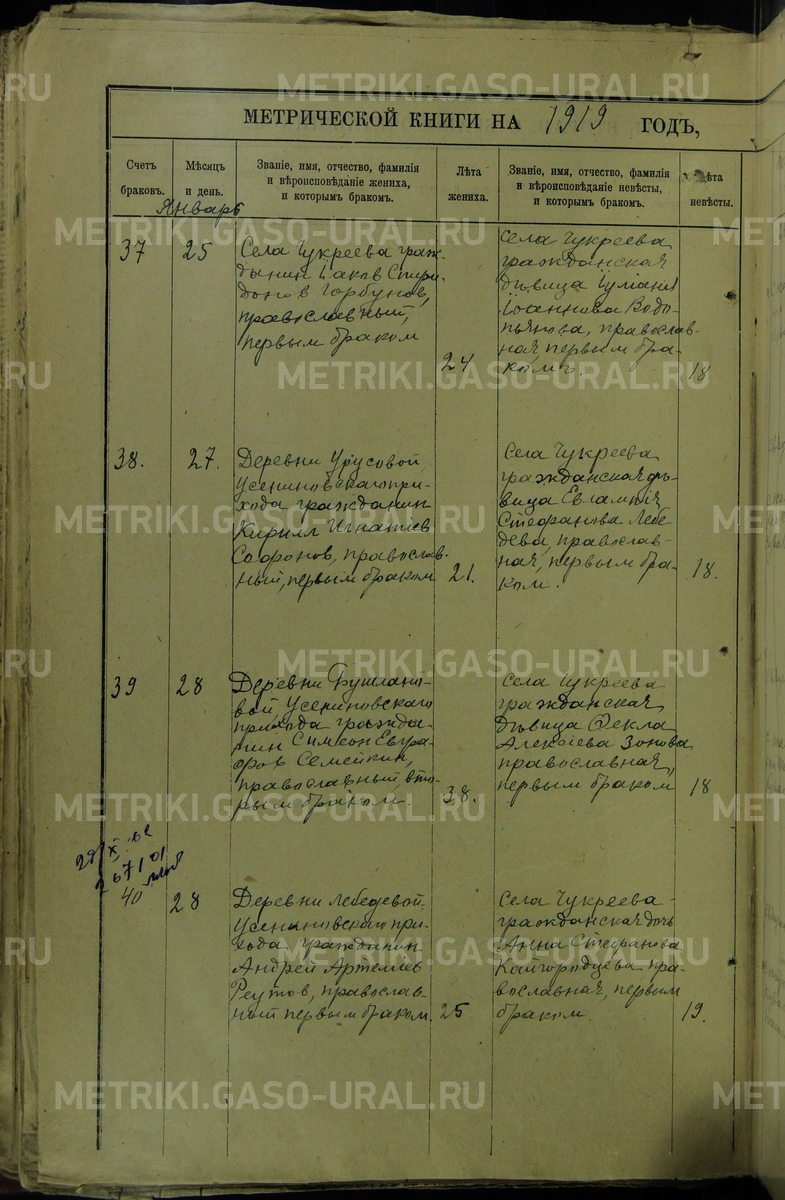 МЕТРИЧЕСКОЙ КНИГИ НА 1919 ГОДЪ,
Счетъ браковъ.
Мѣсяцъ и день.
Званіе, имя, отчество, фамилія
и вѣроисповѣданіе жениха,
и которымъ бракомъ.
Лѣта жениха.
Званіе, имя, отчество, фамилія
и вѣроисповѣданіе невѣсты,
и которымъ бракомъ.
Лѣта невѣсты.
Январь
37
25
Села Чукреева граж-
данин Іаков Спири-
донов Горбунов,
православный,
первым браком
24
Села Чукреева
гражданская
дѣвица Іулианія
Іоаннова Водо-
пьянова, православ-
ная, первым бра-
комъ.
18
38.
27.
Деревни Урусовой
Усениновскаго при-
хода гражданин
Кирилл Игнатиев
Софронов, православ-
ный, первым браком
21.
Села Чукреева
гражданская дѣ-
вица Евлампия
Стефанова Лебе
дева, православ-
ная, первым бра-
ком.
18.
39
28
Деревни
вой Усениновскаго
прихода гражда-
нин Симеон Евгра-
фов Семейкин,
православный, вто-
рым браком.
38.
Села Чукреева
гражданская
дѣвица Ѳекла
Алексіева Зонова
православная,
первым браком
18
40
28
Деревни Лебедевой
Усениновскаго при-
хода гражданин
Андрей Артемиев
Реутов, православ-
ный первым браком.
25
Села Чукреева
гражданская дочь
Анна Стефанова
Кайгородцева пра-
вославная, первым
браком.
19.
METRIKI.GASO-URAL.RU